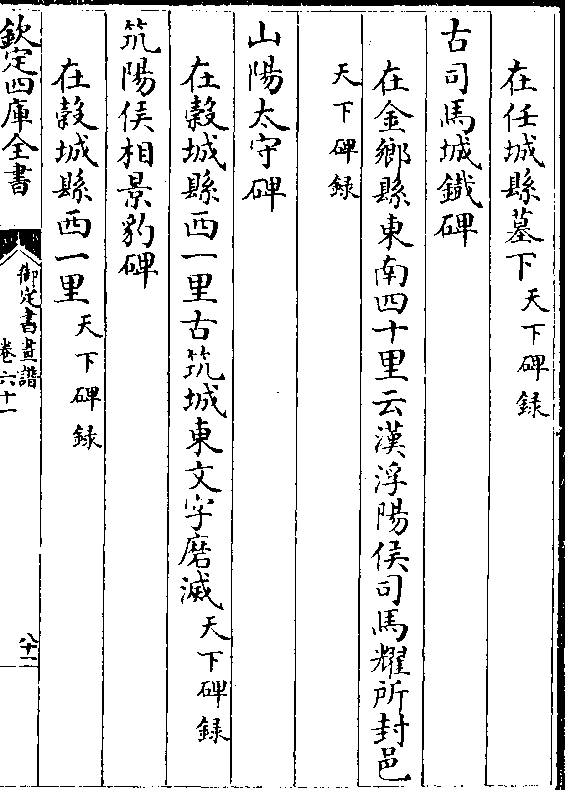 在任城縣墓下天下碑録
古司馬城鐵碑
在金鄉縣東南四十里云漢浮陽侯司馬耀所封邑
天下碑録
山陽太守碑
在穀城縣西一里古筑城東文字磨滅天下碑録
筑陽侯相景豹碑
在穀城縣西一里天下碑録
欽定四庫全書
御定書畫譜
卷六十一
八十二